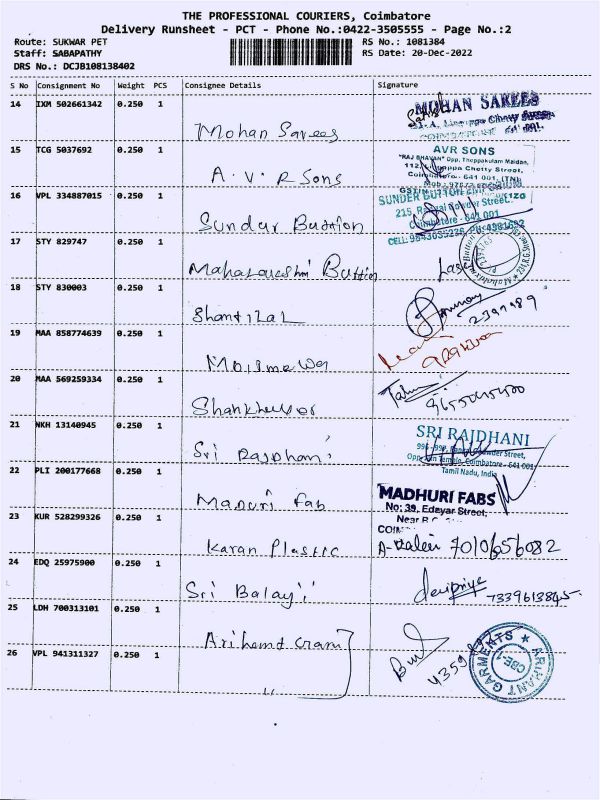 THE PROFESSIONAL COURIERS, Coimbatore
Delivery Runsheet - PCT - Phone No.:0422-3505555 - Page No.:2
Route: SUKWAR PET RS No.: 1081384
Staff: SABAPATHY RS Date: 20-Dec-2022
DRS No.: DCJB108138402
S No Consignment No Weight PCS Consignee Details Signature
14 IXM 502661342 0.250 1
Mohan Sarees
MOHAN SAREES
15 TCG 5037692 0.250 1
A.V.R Sons
AVR SONS
"RAJ BHAVAN" Opp. Theppakulam Maidan,
Chetty Street,
Coimbatore - 641 001. (TN)
16 VPL 334887015 0.250 1
Sundar Buttion
SUNDER BUTTON
Coimbatore - 641 001
17 STY 829747 0.250 1
Mahalakshmi Buttion
18 STY 830003 0.250 1
Shantilal
2397989
19 MAA 858774639 0.250 1
20 MAA 569259334 0.250 1
21 NKH 13140945 0.250 1
Sri Rajdhani
SRI RAJDHANI
Coimbatore - 641 001
Tamil Nadu, India
22 PLI 200177668 0.250 1
Maduri Fab
MADHURI FABS
No: 39, Edayar Street,
Near
23 KUR 528299326 0.250 1
Karan Plastic
7010656082
24 EDQ 25975900 0.250 1
Sri Balaji
devipriya
7339613845
25 LDH 700313101 0.250 1
26 VPL 941311327 0.250 1
"
ARIHANT GARMENTS
CBE-1